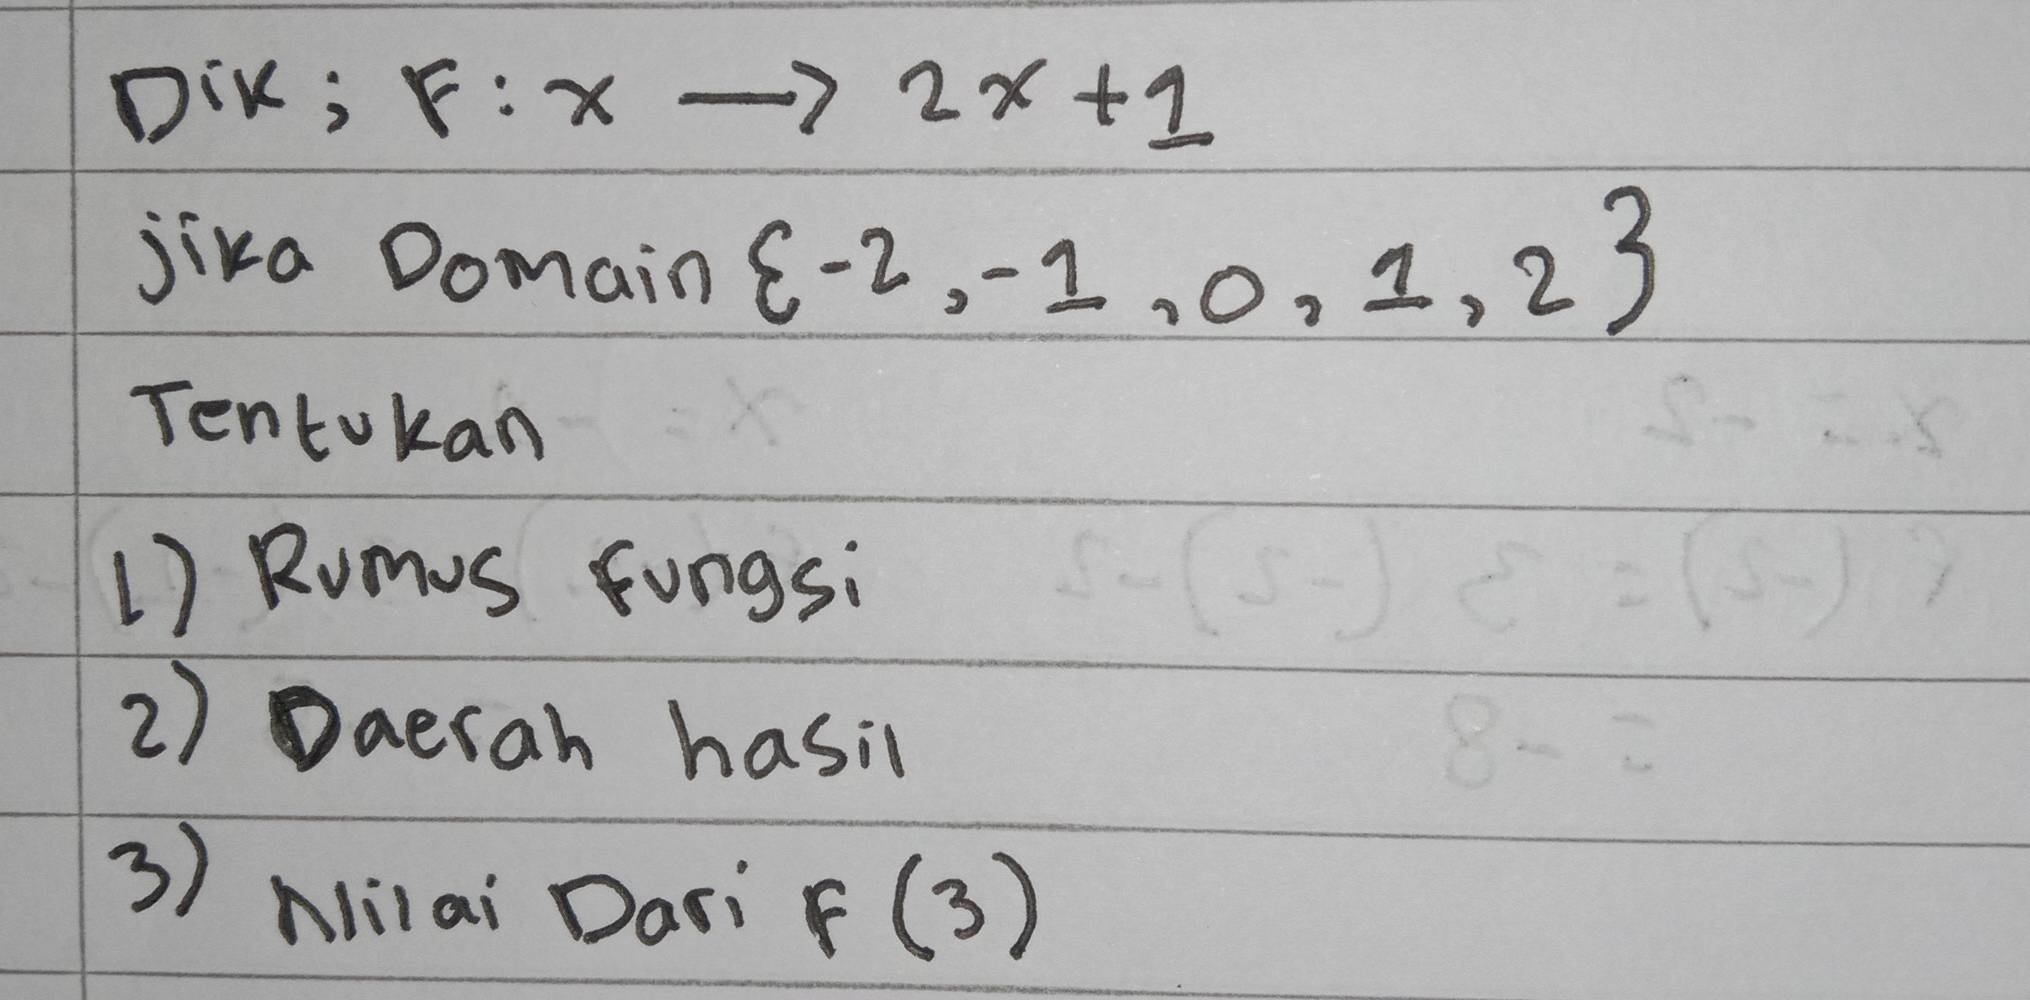 Dik ; F : x → 2x + 1
jika Domain {-2, -1, 0, 1, 2}
Tentukan
1) Rumus fungsi
2) Daerah hasil
3) Nilai Dari F (3)